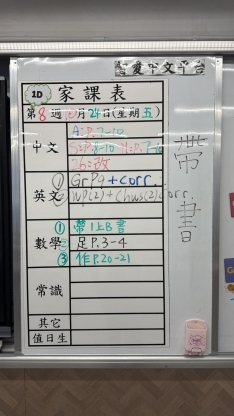 智愛中文平台
1D 家課表
第8週10月24日(星期五)
中文
A:P.7-10
S:P.8-10
改
英文
① Gr P9 + corr.
② WP(2) + Chws(2) corr.
數學
① 帶1上B書
② 足P.3-4
③ 作P.20-21
常識
其它
值日生
帶書